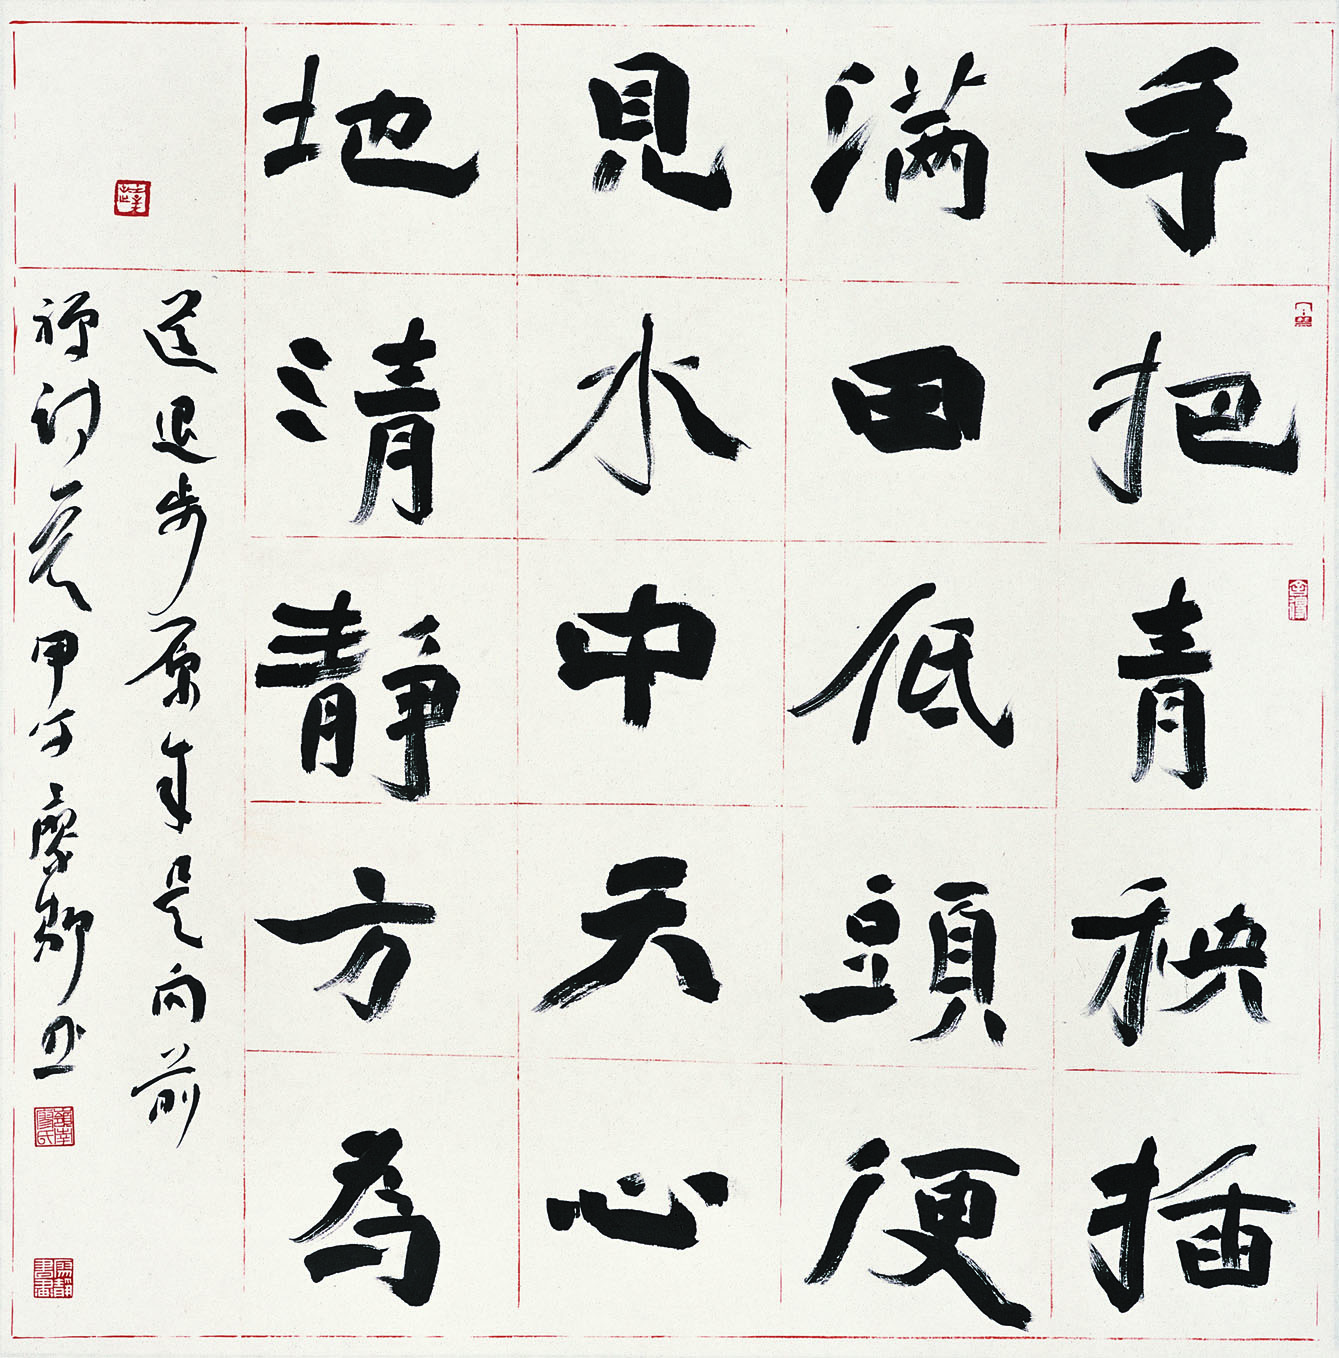 手把青秧插
满田低頭便
見水中天心
地清靜方為
道退步原来是向前
禅诗一首甲午廖